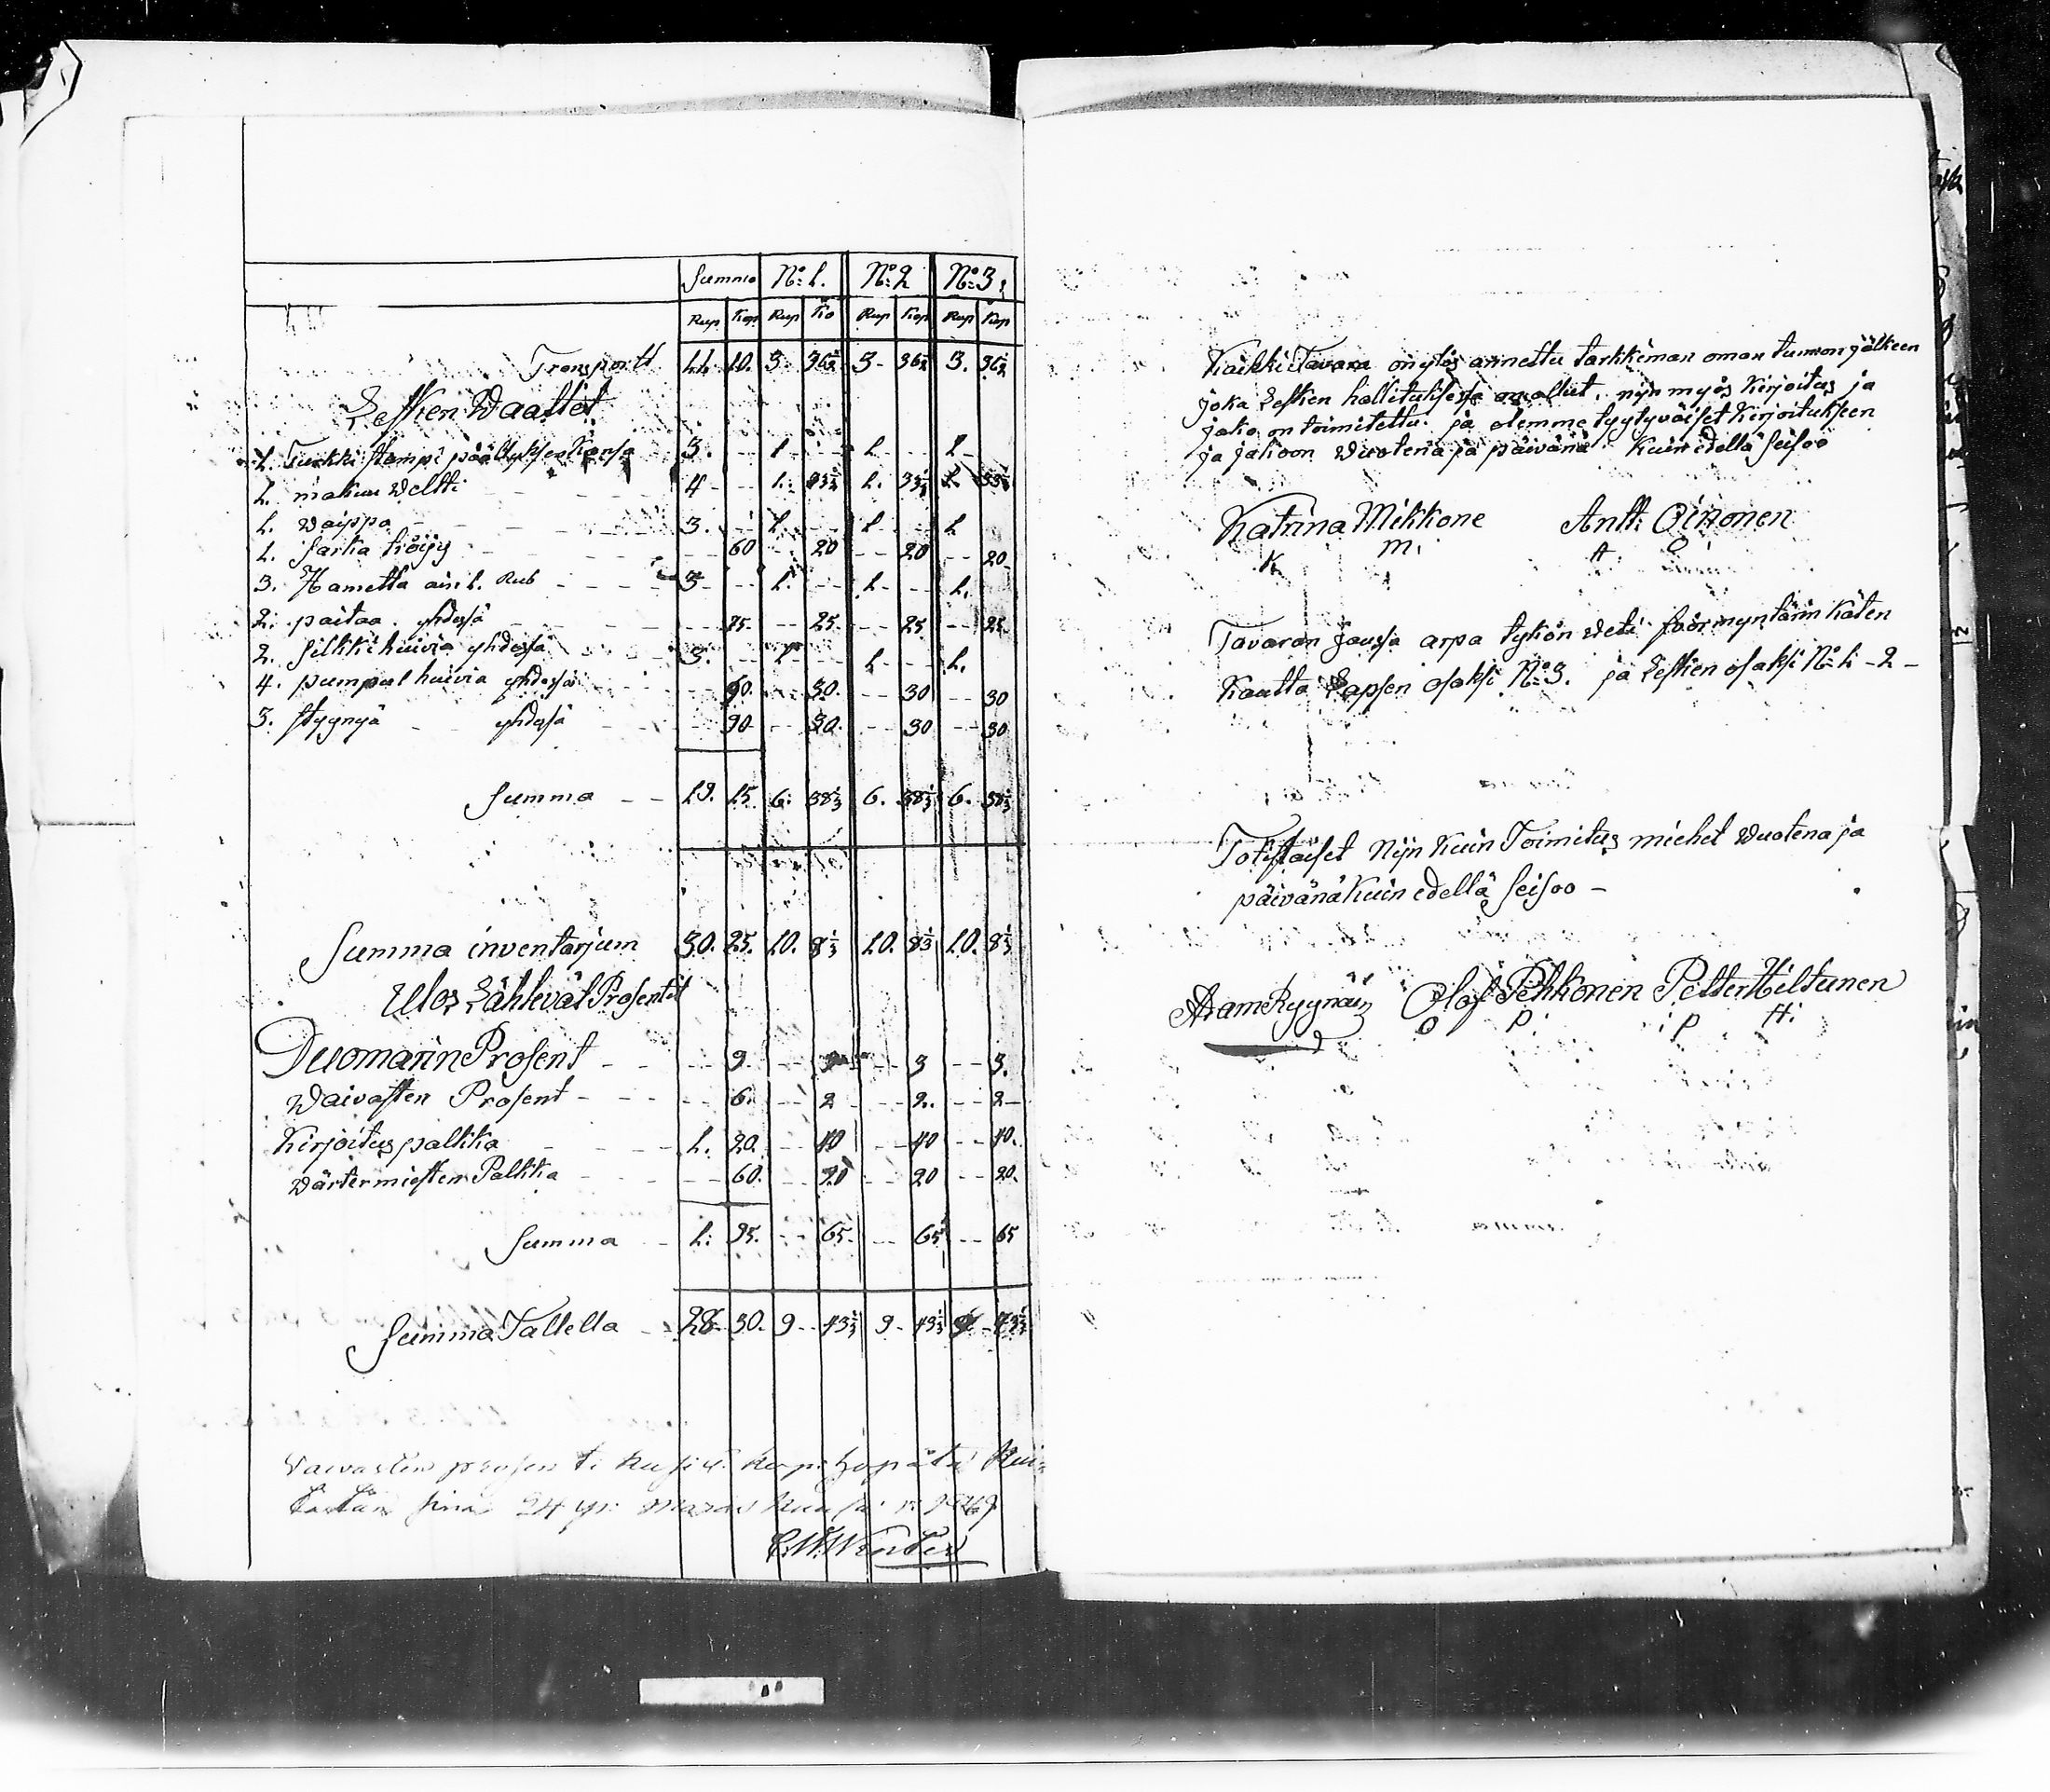 Summa N:o 1. N:o 2 N:o 3
Rup Kop Rup Ko Rup Kop Rup Kop
Transportt 11. 10. 3. 36 1/2 3- 36 1/2 3. 36 1/2
Lesken Waattet
1. Turkki Kansa 3. -- 1 -- 1 -- 1 -
1. makuu Weltti 4 -- 1. 33 1/3 1. 33 1/3 1. 33 1/3
1. Waippa 3. -- 1 -- 1 -- 1
1. sarka tröijy -- 60 -- 20 -- 20 -- 20
3. Hametta ain 1. Rub 3 -- 1. -- 1 -- 1.
2. paitaa yhdessä -- 75. -- 25. -- 25 -- 25
2. silkki huivia yhdessä 3. -- 1 -- 1 -- 1.
4. pumpul huivia yhdessä -- 90. -- 30. -- 30 -- 30
3. styynyä yhdessä -- 90 -- 30. -- 30 -- 30
Summa -- 19. 15 6. 38 1/3 6. 38 1/3 6. 38 1/3
Summa inventarjum 30. 25. 10. 8 1/3 10. 8 1/3 10. 8 1/3
Ulos Lähtevät Prosentit
Duomarin Prosent -- 9. -- 3 -- 3 -- 3.
Waivasten Prosent -- 6. -- 2 -- 2. -- 2
Kirjoitus palkka 1. 20. -- 40 -- 40 -- 40.
Wärtermiesten Palkka -- 60. -- 20 -- 20 -- 20.
Summa 1. 95. -- 65. -- 65 -- 65
Summa Tallella 28. 30. 9 - 43 1/3 9 - 43 1/3 9 - 43 1/3
Waivasten prosenti kusi kop:
24 p:
Kaikki Tavara on ylös annettu tarkkiman oman tunnon jälkeen
joka Lesken hallituksesa on ollut, nijn myös Kirjoitus ja
jako on toimitettu. ja olemme tyytyväiset Kirjoitukseen
ja jakoon Wuotena ja päivänä Kuin edellä seisoo
Katrina Mikkone Antti Oinonen
K m. A O
Tavaran jaussa arpa tykön Weti förmyntärin Käten
Kautta Lapsen osaksi N:o 3. ja Lesken osaksi N:o 1 - 2 -
Totistaiset Nijn Kuin Toimitus miehet Wuotena ja
päivänä Kuin edellä seisoo -
Adam Ryynäin Olof Pehkonen Petter Hiltunen
O P. P H.